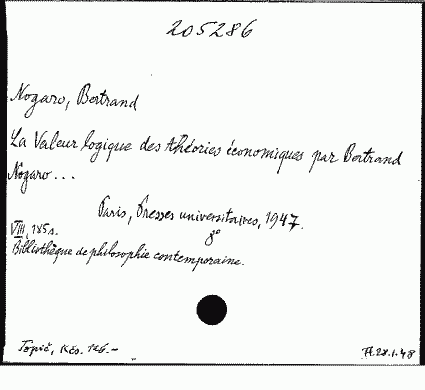 205286
Nogaro, Bertrand
La Valeur logique des théories économiques par Bertrand
Nogaro...
Paris, Presses universitaires, 1947.
VIII, 185 s. 8°
Bibliothèque de philosophie contemporaine.
Topič, Kčs. 126.-
28.1.48